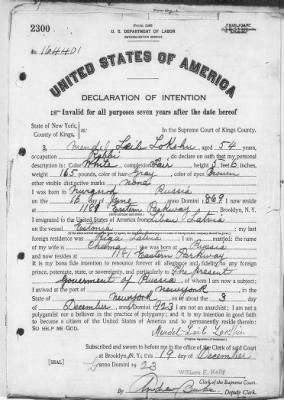 2300
U. S. DEPARTMENT OF LABOR
No. 164401
UNITED STATES OF AMERICA
DECLARATION OF INTENTION
Invalid for all purposes seven years after the date hereof
State of New York,
County of Kings,
In the Supreme Court of Kings County.
I, Mendel Leib, aged 54 years,
occupation Rabbi, do declare on oath that my personal
description is: Color White, complexion Fair, height 5 feet 6 inches,
weight 165 pounds, color of hair Gray, color of eyes Brown
other visible distinctive marks none
I was born in Russia
on the 16 day of June, anno Domini 1869; I now reside
at 1181 Eastern Parkway, Brooklyn, N.Y.
I emigrated to the United States of America from Latvia
on the vessel Estonia; my last
foreign residence was Riga Latvia; I am married; the name
of my wife is; she was born at Russia
and now resides at 1181 Eastern Parkway
It is my bona fide intention to renounce forever all allegiance and fidelity to any foreign
prince, potentate, state, or sovereignty, and particularly to The present
Government of Russia, of whom I am now a subject;
I arrived at the port of New York, in the
State of New York, on or about the 3 day
of December, anno Domini 1923; I am not an anarchist; I am not a
polygamist nor a believer in the practice of polygamy; and it is my intention in good faith
to become a citizen of the United States of America and to permanently reside therein:
SO HELP ME GOD.
Mendel Leib
Subscribed and sworn to before me in the office of the Clerk of said Court
at Brooklyn, N.Y., this 19 day of December
[SEAL] anno Domini 1923
William E. Kelly
Clerk of the Supreme Court.
By, Deputy Clerk.